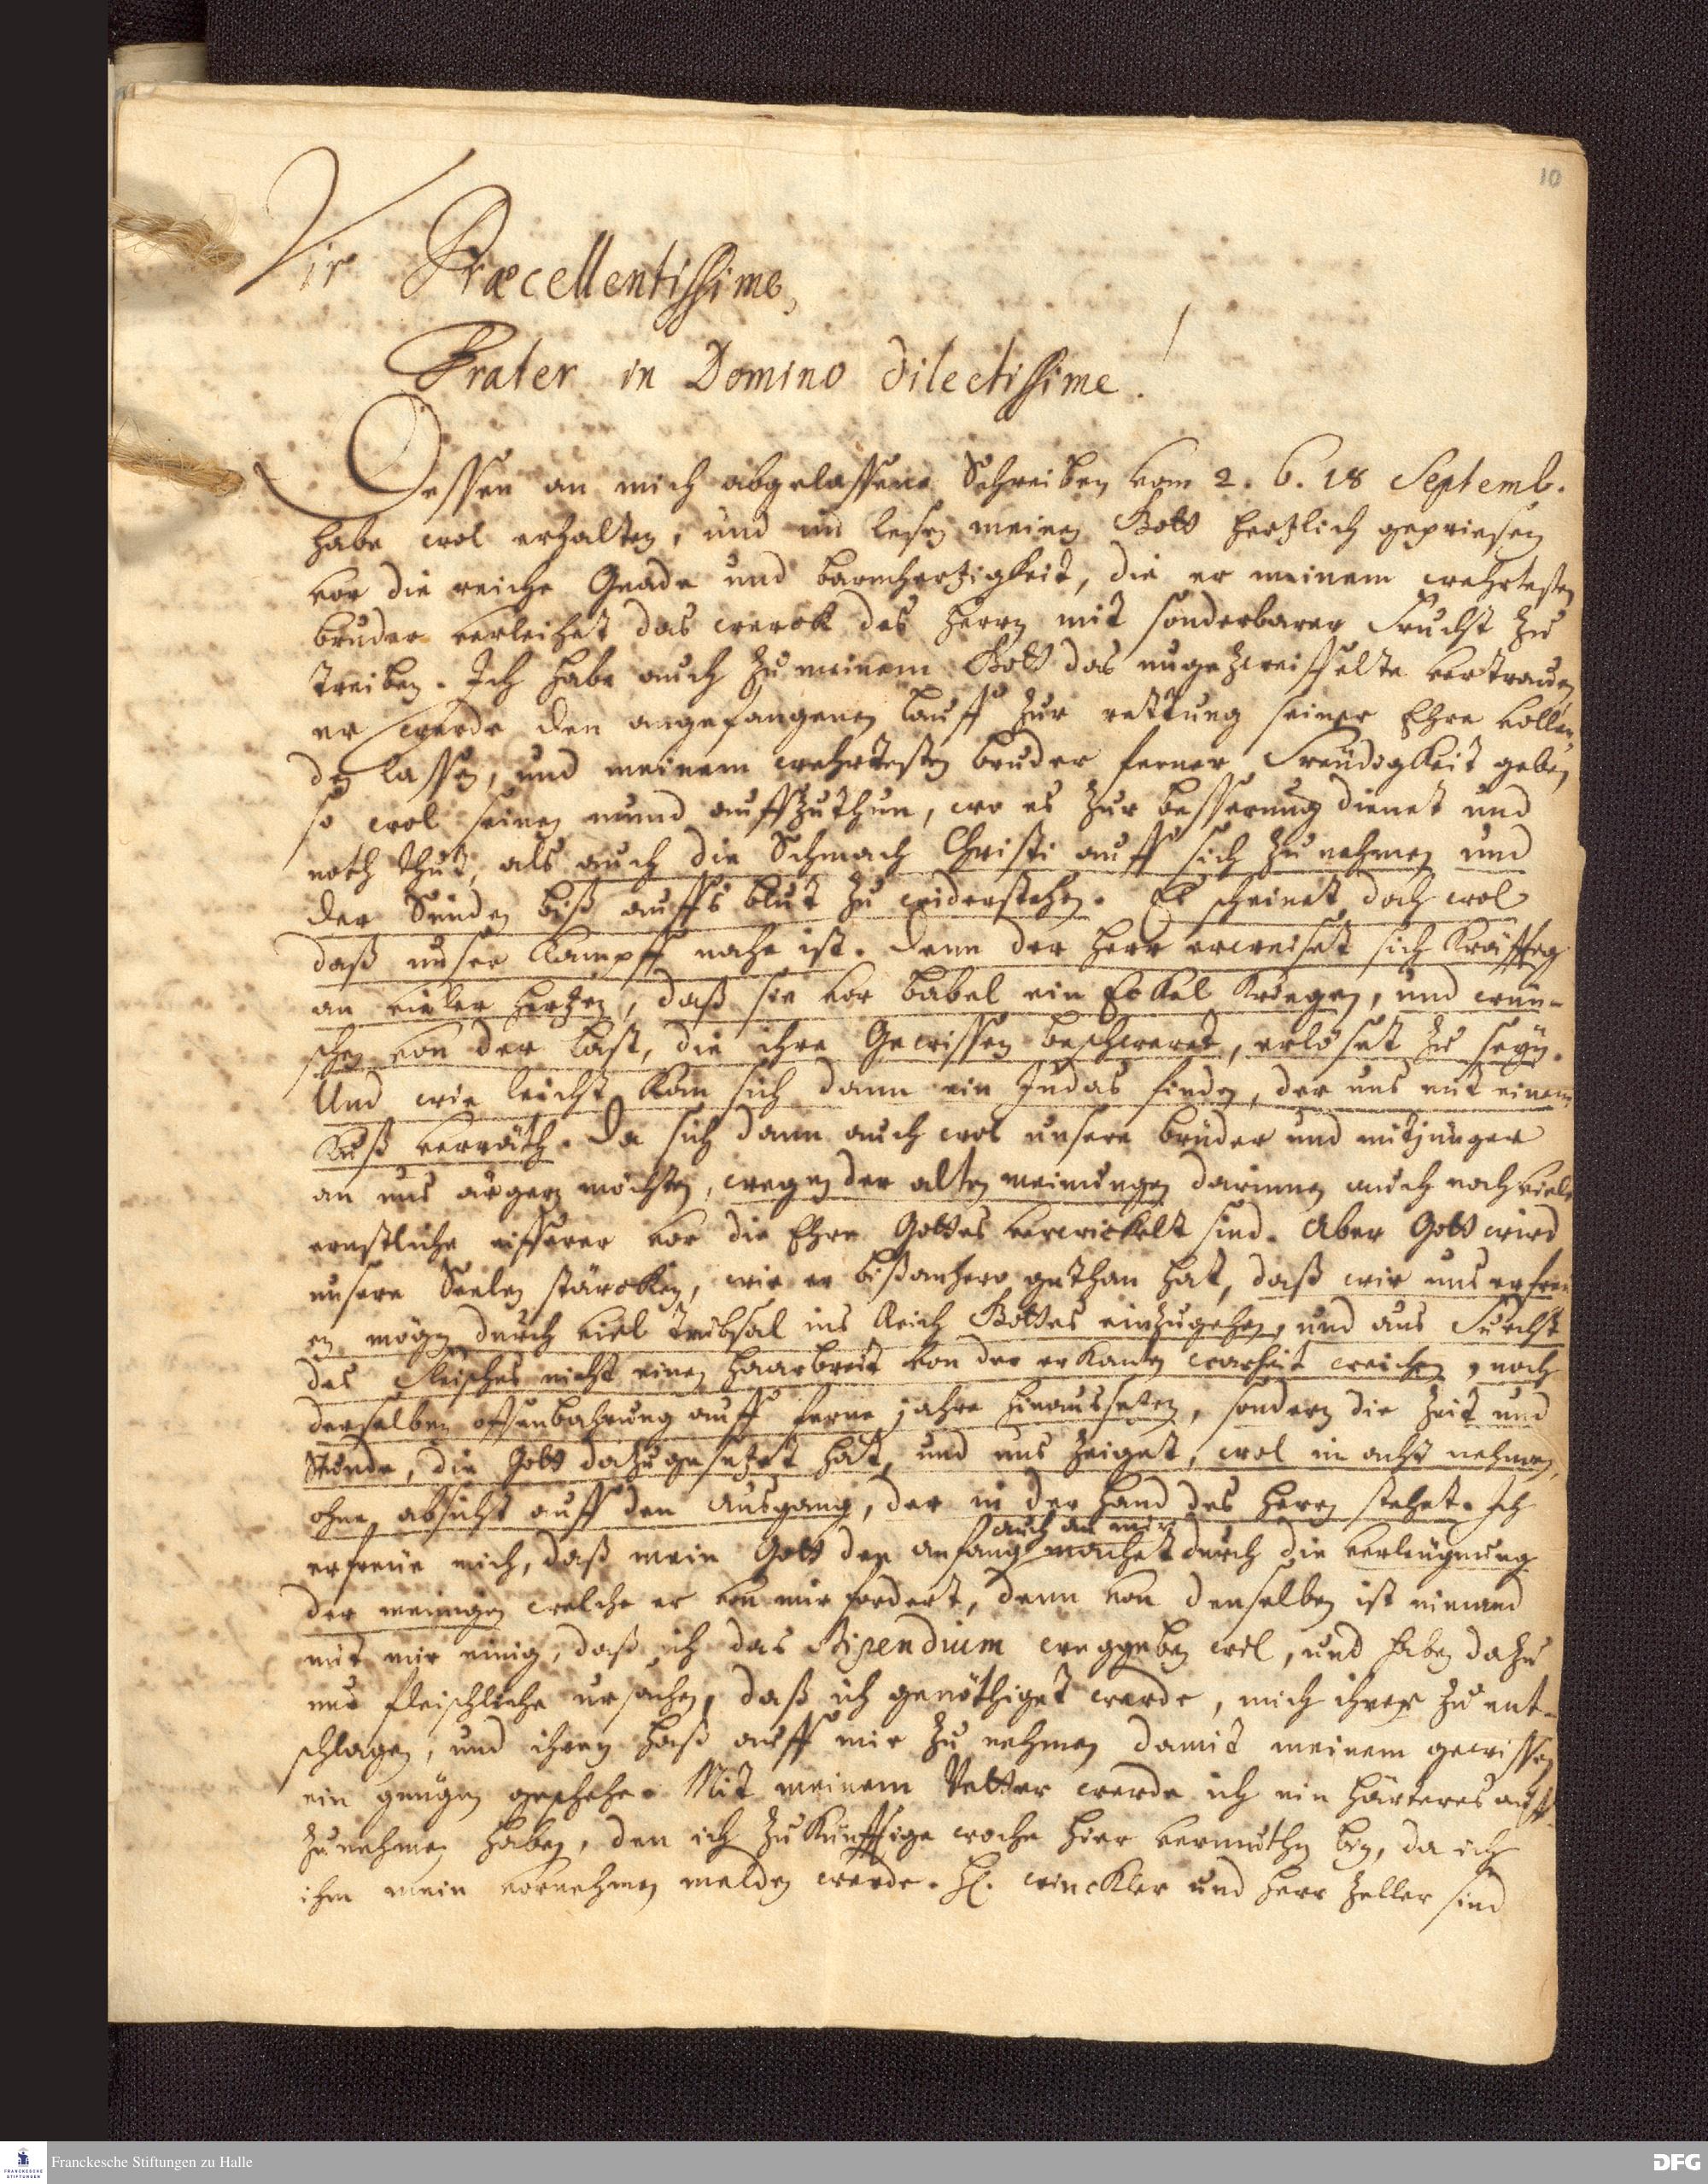 10
Vir Præcellentissime,
Frater in Domino dilectissime!
Dessen an mich abgelassene Schreiben vom 2. 6. 18 Septemb.
habe wol erhalten, und im lesen meinen Gott hertzlich gepriesen
vor die reiche Gnade und barmhertzigkeit, die er meinem wehrtesten
bruder verleihet das werck des Herrn mit sonderbarer Frucht zu
treiben. Ich habe auch zu meinem Gott das ungezweiffelte vertrauen
er werde den angefangenen lauff zur rettung seiner Ehre vollen-
den lassen, und meinem wehrtesten bruder ferner Freudigkeit geben
so wol seinen mund auffzuthun, wo es zur besserung dienet und
noth thut, als auch die Schmach Christi auff sich zu nehmen und
der Sünden biß auffs blut zu widerstehen. Es scheinet doch wol
daß unser Kampff nahe ist. Denn der Herr erweiset sich kräfftig
an vieler hertzen, daß sie vor Babel ein Eckel kriegen, und wün-
schen von der last, die ihre Gewissen beschweret, erlöset zu seyn.
Und wie leicht kan sich dann ein Judas finden, der uns mit einem
Kuß verräth. Da sich dann auch wol unsere brüder und mitjünger
an uns ärgern möchten, wegen der alten meinungen darinnen auch noch viele
ernstliche eifferer vor die Ehre Gottes verwickelt sind. Aber Gott wird
unsere Seelen stärcken, wie er bißanhero gethan hat, daß wir uns erfreu
en mögen durch viel trübsal ins Reich Gottes einzugehen, und aus Furcht
des Fleisches nicht einen haarbreit von der erkanten warheit weichen, noch
derselben offenbahrung auff ferne jahre hinaussetzen, sondern die Zeit und
Stunde, die Gott dazu gesetzet hat, und uns zeiget, wol in acht nehmen,
ohne absicht auff den Ausgang, der in der Hand des Herrn stehet. Ich
auch an mir
erfreue mich, daß mein Gott den anfang machet durch die verleugnung
der meinigen welche er von mir fordert, denn von denselben ist niemand
mit mir einig, daß ich das Stipendium weggeben wil, und haben dazu
nur fleischliche ursachen, daß ich genöthiget werde, mich ihrer zu ent-
schlagen, und ihren haß auff mir zu nehmen damit meinem gewissen
ein genügen geschehe. Mit meinem Vetter werde ich ein härteres auff
zunehmen haben, den ich zukünfftige woche hier vermuthen bin, da ich
ihm mein vornehmen melden werde. H. Winckler und Herr Zeller sind
Franckesche Stiftungen zu Halle
FRANCKESCHE
STIFTUNGEN
DFG